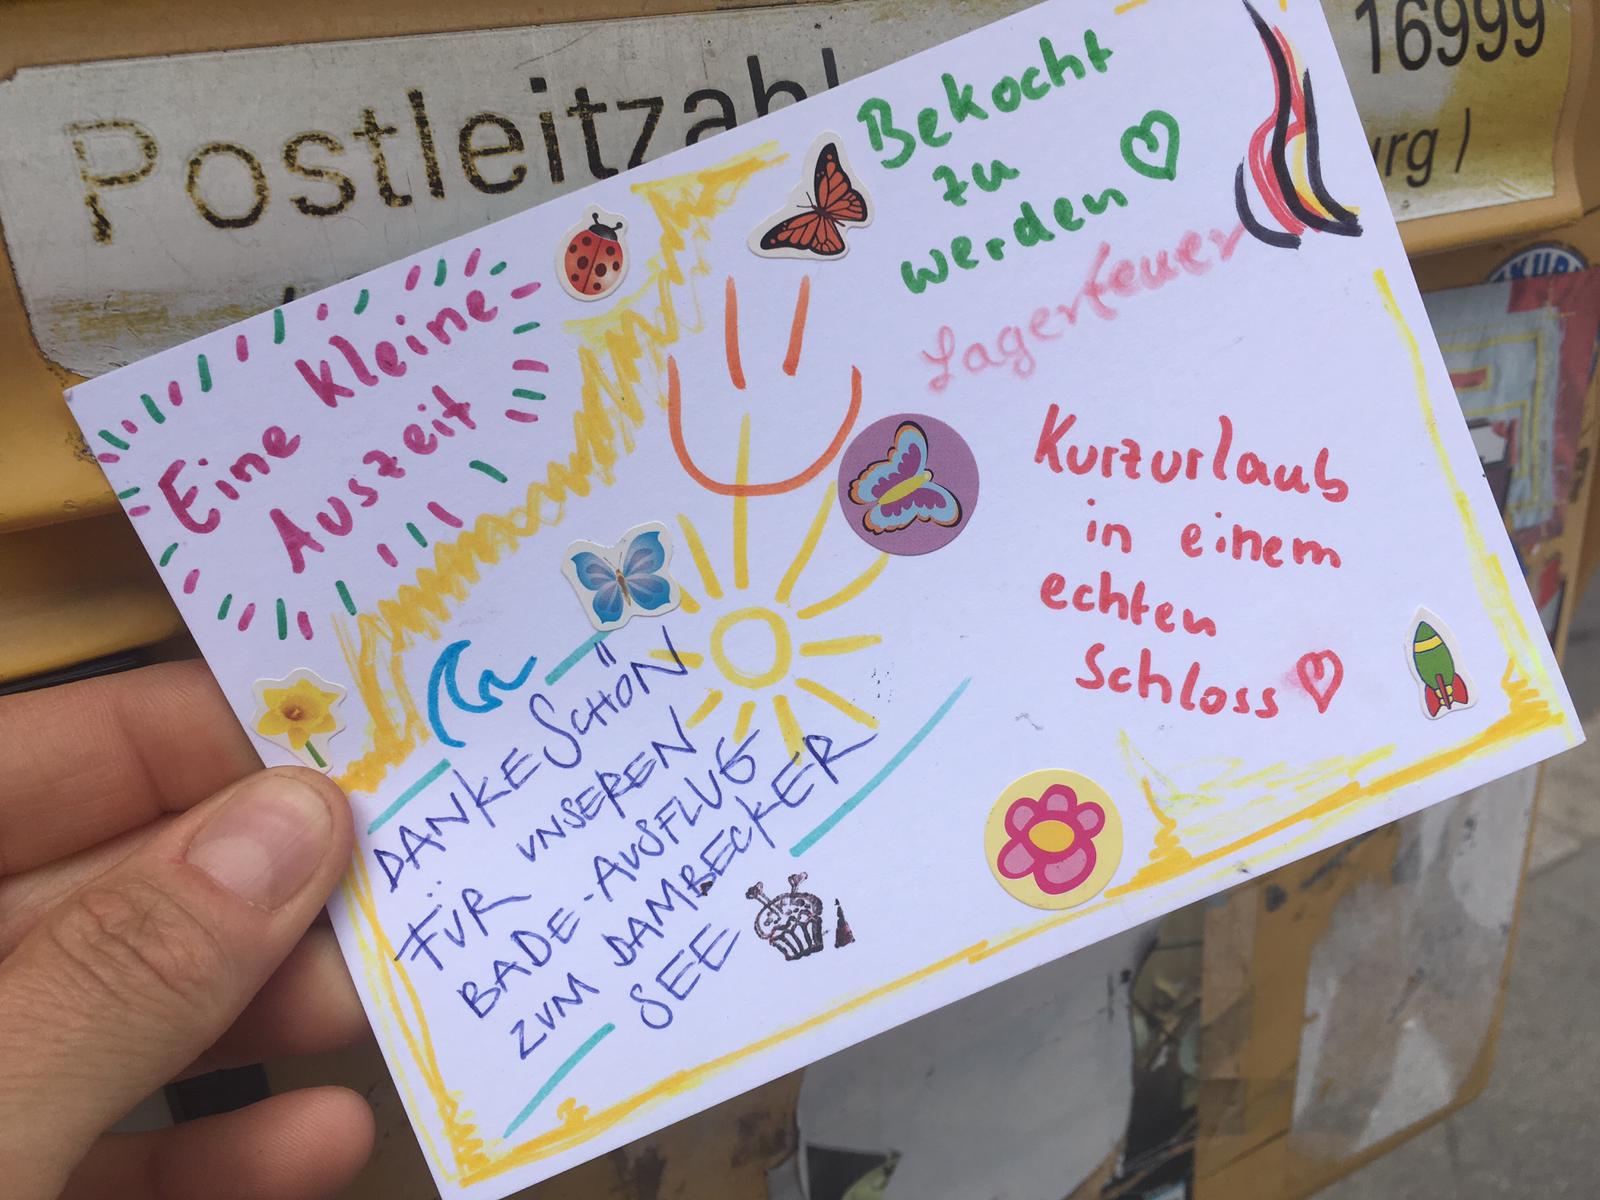 Postleitzahl
16999
urg )
Eine kleine
Auszeit
Bekocht
zu
werden
Lagerfeuer
Kurzurlaub
in einem
echten
Schloss
DANKESCHÖN
FÜR UNSEREN
BADE-AUSFLUG
ZUM DAMBECKER
SEE